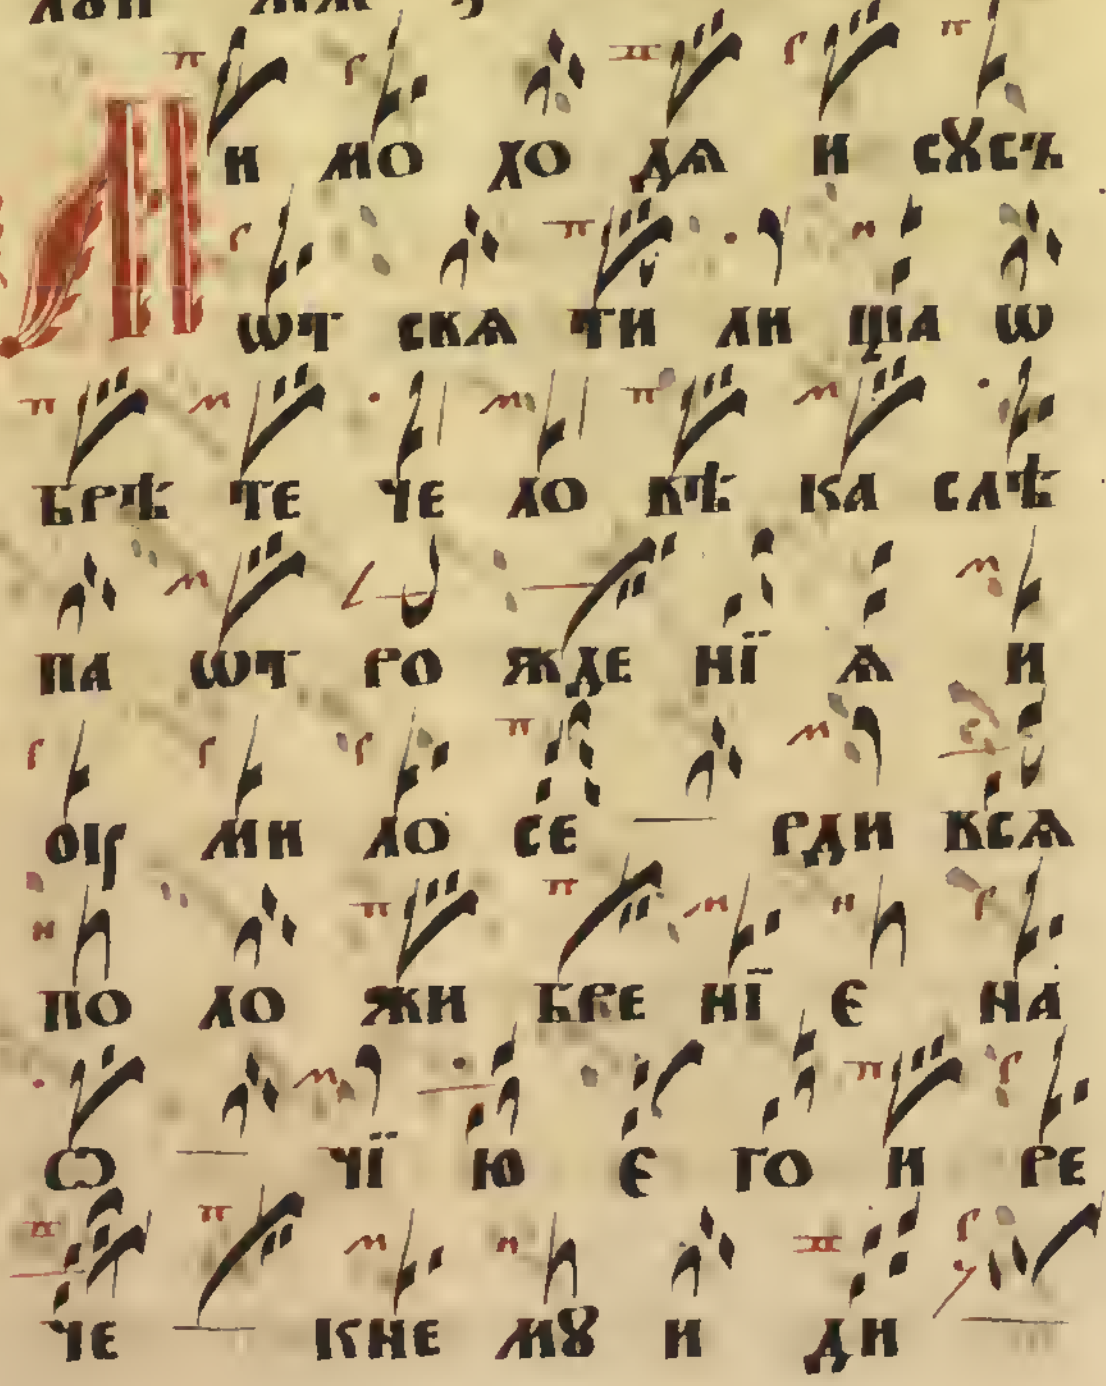 МИ МО ХО ДѦ И СꙊСЪ
ѾТ СВѦ ТИ ЛИ ЩА Ѡ
БРѢ ТЕ ЧЕ ЛО ВѢ КА СЛѢ
ПА ѾТ РО ЖДЕ НЇ Ѧ И
ОУ МИ ЛО СЕ РДИ ВСѦ
ПО ЛО ЖИ БРЕ НЇ Є НА
Ѻ ЧЇ Ю Є ГО И РЕ
ЧЕ КНЕ МꙊ И ДИ